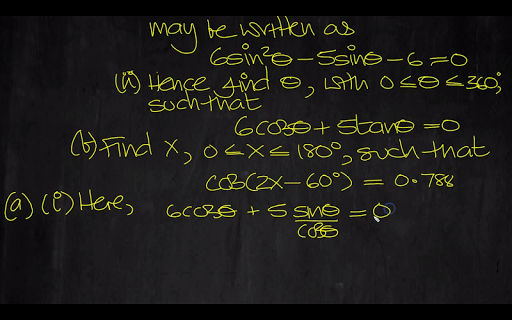 may be written as
6sin²θ - 5sinθ - 6 = 0
(ii) Hence find θ, with 0 ≤ θ ≤ 360°,
such that
6cosθ + 5tanθ = 0
(b) Find x, 0 ≤ x ≤ 180°, such that
cos(2x - 60°) = 0.788
(a) (i) Here, 6cosθ + 5 sinθ/cosθ = 0